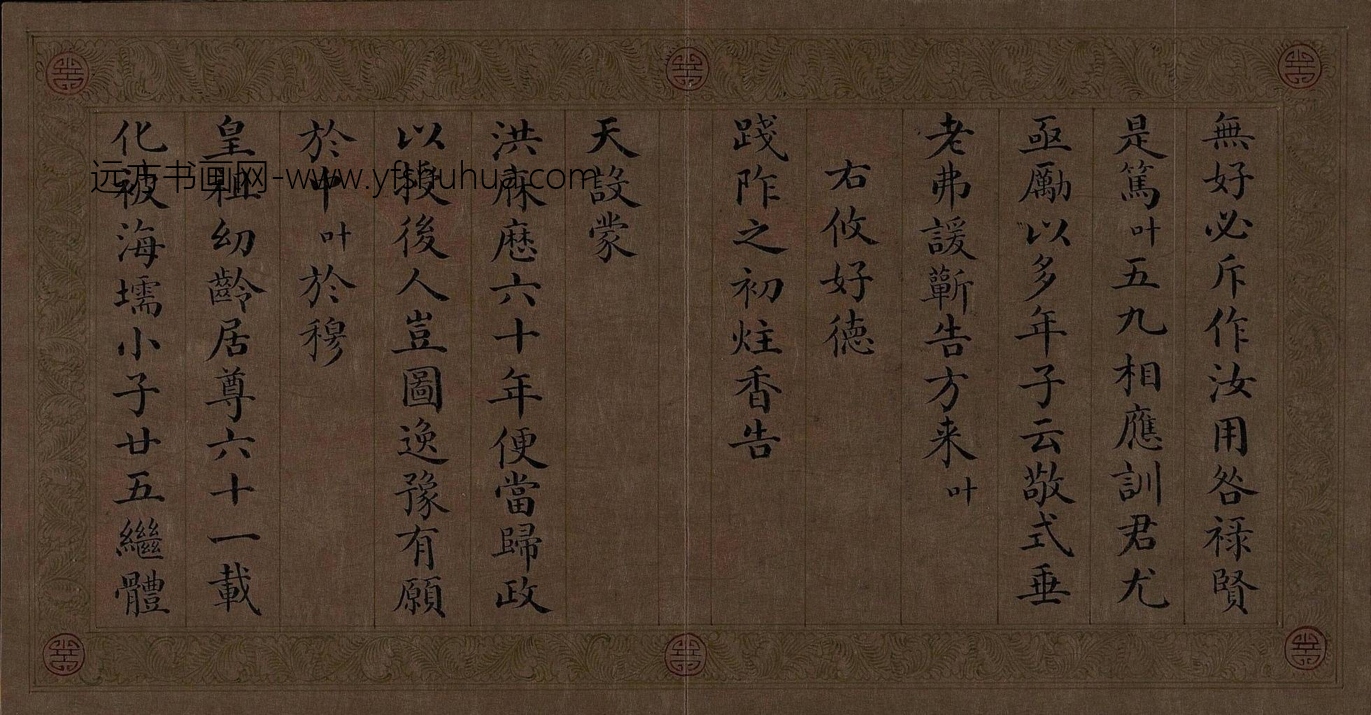 無好必斥作汝用咎祿賢
是篤叶五九相應訓君尤
亟勵以多年子云敬式垂
老弗諼蘄告方来叶
右攸好德
踐阼之初炷香告
天設蒙
洪庥歷六十年便當歸政
以授後人豈圖逸豫有願
於中叶於穆
皇祖幼齡居尊六十一載
化被海壖小子廿五繼體
远方书画网-www.yfshuhua.com